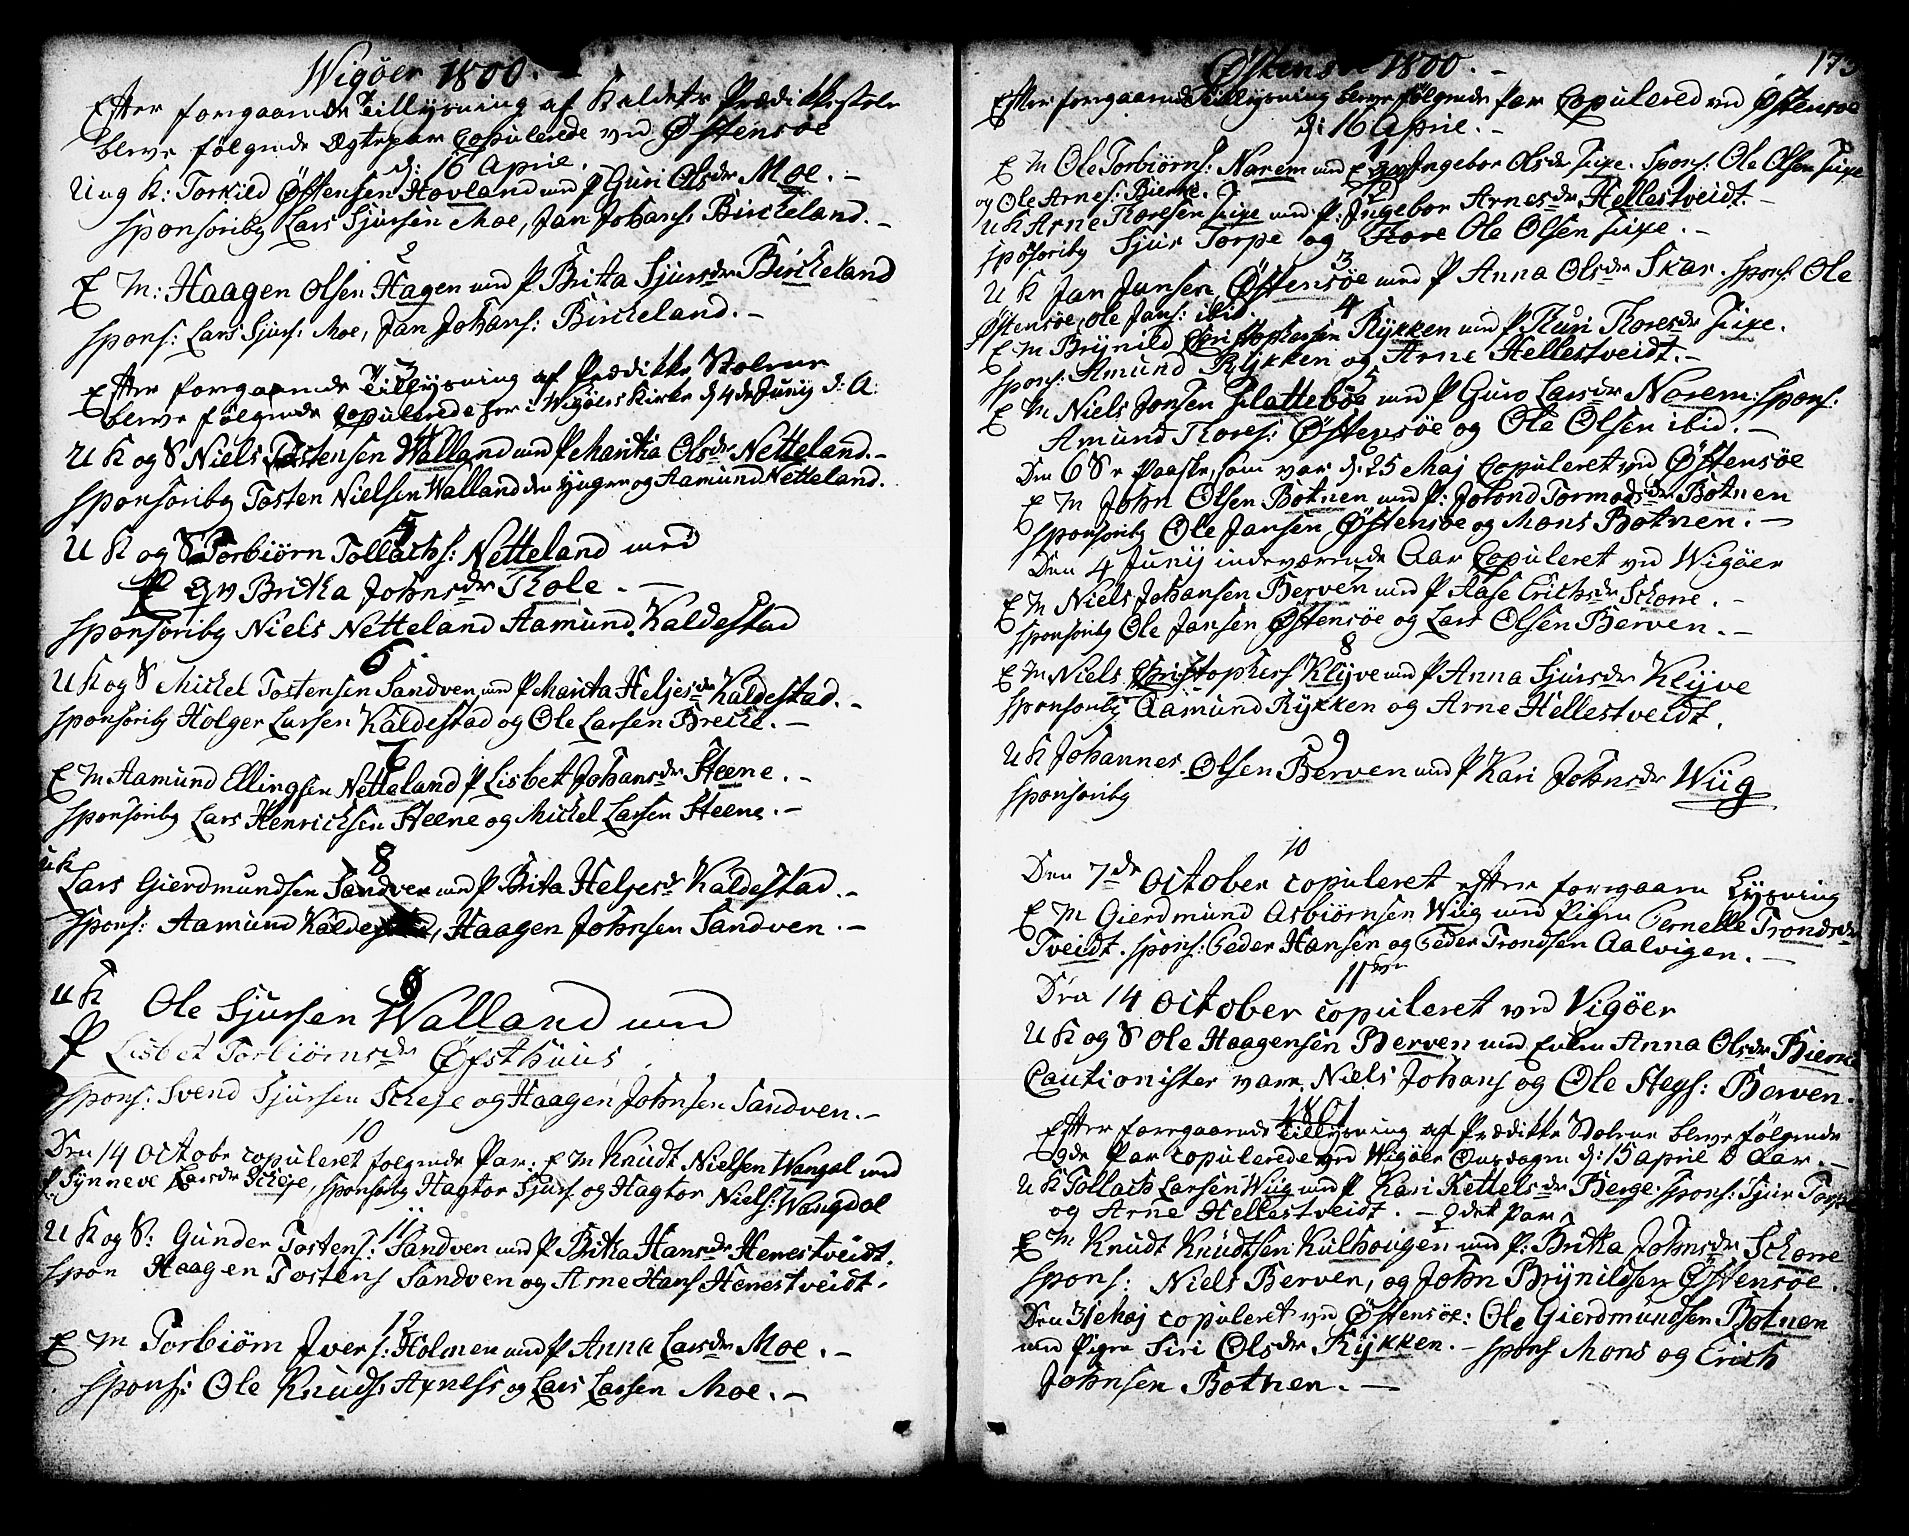 Wigøer 1800.
Efter foregaaende Tillysning af Kaldets Prædikkestole
blewe følgende Ægtepar Copulerede ved Østensøe
d: 16 April.
Ung K: Torkild Østensen Hovland med P Guri Olsdr Moe. -
Sponsoriby Lars Sjursen Moe, Jan Johans: Birkeland. -
2
E M: Haagen Olsen Hagen med P Brita Sjursdr Birkeland
Spons: Lars Sjurs: Moe, Jan Johans: Birkeland. -
3
Efter foregaaende Tillysning af Prædikke Stolene
blewe følgende Copulerede her i Wigøers Kirke d 4de Junij d: A:
4
U K og S Niels Tostensen Walland med P Marita Olsdr Netteland. -
Sponsoriby Tosten Nielsen Walland den yngre og Aamund Netteland.
5
U K og S Torbiørn Tollachs: Netteland med
P Britha Johnsdr Kole. -
Sponsoriby Niels Netteland Aamund Kaldestad
6
U K og S Michel Tostensen Sandven med P Marita Heljesdr Kaldestad. -
Sponsoriby Holger Larsen Kaldestad og Ole Larsen Breche. -
7
E M Aamund Ellingsen Netteland P Lisbet Johansdr Steene. -
Sponsoriby Lars Henrichsen Steene og Michel Larsen Steene. -
8
U K
Lars Gierdmundsen Sandven med P Brita Heljesdr Kaldestad. -
Spons: Aamund Kaldestad, Haagen Johnsen Sandven. -
9
U K Ole Sjursen Walland med
P Lisbet Torbiørnsdr Øfsthuus
Spons: Svend Sjursen Scheje og Haagen Johnsen Sandven. -
10
Den 14 Octobr copuleret følgende Par: E M Knudt Nielsen Wangdal med
P Synneve Larsdr Scheje, Sponsoriby Hagtor Sjurs: og Hagtor Niels: Wangdal
11
U K og S: Gunder Tostens: Sandven med P Britha Hansdr Henestveidt.
Spon Haagen Tostens Sandven og Arne Hans Henestveidt.
12
E M Torbiørn Ivers: Holmen med P Anna Larsdr Moe. -
Spons: Ole Knuds: Axness og Lars Larsen Moe. -
Østensøe 1800. - 173
Efter foregaaende Tillysning blewe følgende Par Copulered ved Østensøe
d: 16 April. -
1
E M Ole Torbiørns: Narem med Ingebor Olsdr Fixe. Spons: Ole Olsen Fixe
og Ole Arnes: Bierke.
2
U K Arne Thoresen Fixe med P: Ingebor Arnesdr Hellestveidt. -
Sposoriby Sjur Torpe og Ole Olsen Fixe. -
3
U K Jan Jansen Østensøe med P Anna Olsdr Skar. Spons: Ole
Østensøe, Ole Jans: ibid.
4
E M Brynild Christophersen Rykken med P. Kuri Thoresdr Fixe.
Spons: Amund Rykken og Arne Hellestveidt. -
5
E M Niels Jonsen Flattebøe med P Guro Larsdr Narem: Spons:
Amund Thores: Østensøe og Ole Olsen ibid. -
Den 6 S e Paaske, som var d: 25 Maj Copuleret ved Østensøe
6
E M John Olsen Botnen med P: Jorond Tormodsdr Botnen
Sponsoriby Ole Jansen Østensøe og Mons Botnen. -
Den 4 Junij indeværende Aar Copuleret ved Wigøer
7
E M Niels Johansen Berven med P Aase Erichsdr Schore. -
Sponsoriby Ole Jansen Østensøe og Lars Olsen Berven. -
8
E M Niels Christophers Klyve med P Anna Sjursdr Klyve
Sponsoriby Aamund Rykken og Arne Hellestveidt.
9
U K Johannes Olsen Berven med P Kari Johnsdr Wiig
Sponsoriby
10
Den 7de October copuleret efter foregaaen Lysning
E M Gierdmund Asbiørnsen Wiig med Pigen Pernelle Trondsdr
Tveidt. Spons: Peder Hansen og Peder Trondsen Aalvigen. -
11
Den 14 October copuleret ved Vigøer
U K og S Ole Haagensen Berven med Enken Anna Olsdr Bierke
Cautionister vare Niels Johans og Ole Steys: Berven.
1801
Efter foregaaende Tillysning af Prædikke Stolene blewe følgende
Par copulerede ved Wigøer Onsdagen d: 15 April d Aar. -
U K Tollach Larsen Wiig med P Kari Kettelsdr Berge. Spons: Sjur Torpe
og Arne Hellestveidt. - 2det Par
E M Knudt Knudtsen Kulhougen med P: Britha Johnsdr Schore
Spons: Niels Berven, og John Brynildsen Østensøe.
Den 31 Maj copuleret ved Østensøe: Ole Gierdmundsen Botnen
med Pigen Siri Olsdr Rykken. - Spons Mons og Erich
Johnsen Botnen. -